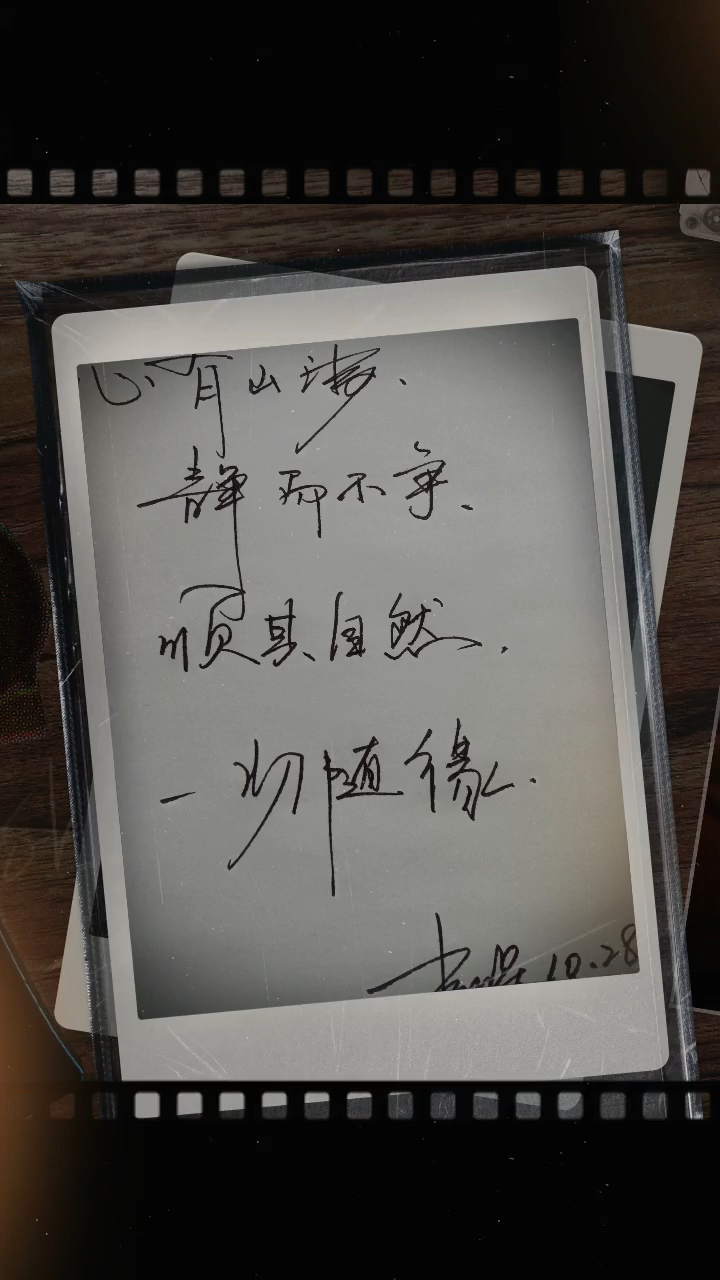 心有山海、
静而不争、
顺其自然.
一切随缘.
10.28